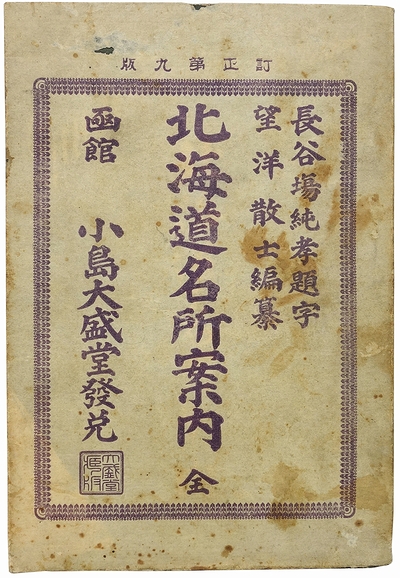 訂正第九版
長谷場純孝題字
望洋散士編纂
北海道名所案内 全
函館 小島大盛堂發兌